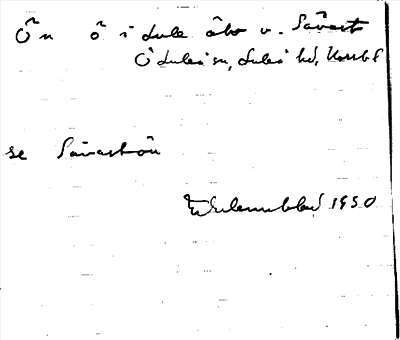 Ön ö i Lule älv v. Sävast
Ö Luleå sn, Luleå hd, Norrb l
se Sävastön
1950